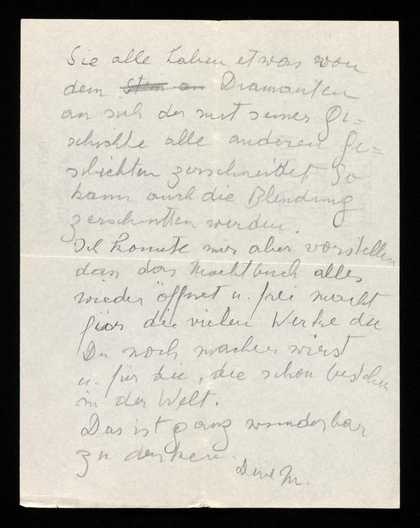 Sie alle haben etwas von
dem Diamanten
an sich der mit seiner Ge=
schichte alle anderen Ge=
schichten zerschneidet. So
kann auch die Blendung
zerschnitten werden.
Ich könnte mir aber vorstellen
dass das Machtbuch alles
wieder öffnet u. frei macht
für die vielen Werke die
Du noch machen wirst
u. für die, die schon bestehen
in der Welt.
Das ist ganz wunderbar
zu denken.
Dein M.